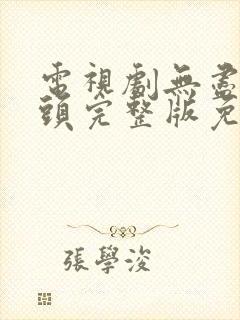 電視劇無盡
頭完整版免
張學浚